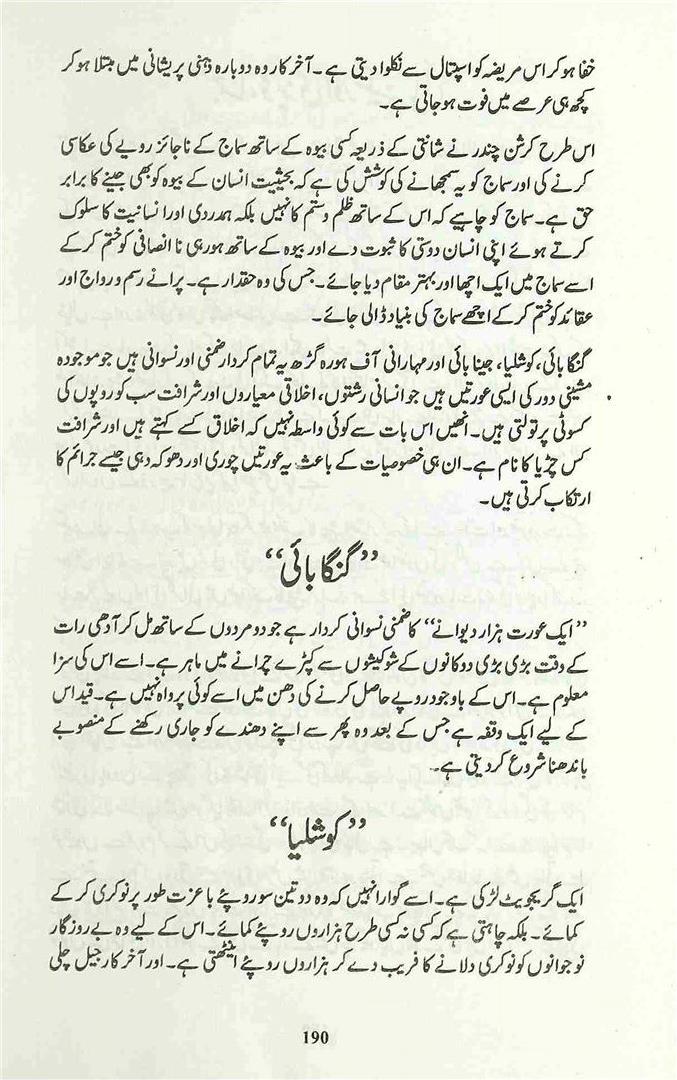 خفا ہوکر اس مریضہ کو اسپتال سے نکلوا دیتی ہے۔ آخر کار وہ دوبارہ ذہنی پریشانی میں مبتلا ہوکر
کچھ ہی عرصے میں فوت ہو جاتی ہے۔
اس طرح کرشن چندر نے شانتی کے ذریعہ کسی بیوہ کے ساتھ سماج کے ناجائز رویے کی عکاسی
کرنے کی اور سماج کو یہ سمجھانے کی کوشش کی ہے کہ بحیثیت انسان کے بیوہ کو بھی جینے کا برابر
حق ہے۔ سماج کو چاہیے کہ اس کے ساتھ ظلم و ستم کا نہیں بلکہ ہمدردی اور انسانیت کا سلوک
کرتے ہوئے اپنی انسان دوستی کا ثبوت دے اور بیوہ کے ساتھ ہو رہی نا انصافی کو ختم کر کے
اسے سماج میں ایک اچھا اور بہتر مقام دیا جائے۔ جس کی وہ حقدار ہے۔ پرانے رسم و رواج اور
عقائد کو ختم کر کے اچھے سماج کی بنیاد ڈالی جائے۔
گنگا بائی، کوشلیا، جینا بائی اور مہارانی آف ہورہ گڑھ یہ تمام کردار ضمنی اور نسوانی ہیں جو موجودہ
مشینی دور کی ایسی عورتیں ہیں جو انسانی رشتوں، اخلاقی معیاروں اور شرافت سب کو روپوں کی
کسوٹی پر تولتی ہیں۔ انھیں اس بات سے کوئی واسطہ نہیں کہ اخلاق کسے کہتے ہیں اور شرافت
کس چڑیا کا نام ہے۔ ان ہی خصوصیات کے باعث یہ عورتیں چوری اور دھوکہ دہی جیسے جرائم کا
ارتکاب کرتی ہیں۔
”گنگا بائی“
”ایک عورت ہزار دیوانے“ کا ضمنی نسوانی کردار ہے جو دو مردوں کے ساتھ مل کر آدھی رات
کے وقت بڑی بڑی دوکانوں کے شوکیشوں سے کپڑے چرانے میں ماہر ہے۔ اسے اس کی سزا
معلوم ہے۔ اس کے باوجود روپے حاصل کرنے کی دھن میں اسے کوئی پرواہ نہیں ہے۔ قید اس
کے لیے ایک وقفہ ہے جس کے بعد وہ پھر سے اپنے دھندے کو جاری رکھنے کے منصوبے
باندھنا شروع کر دیتی ہے۔
”کوشلیا“
ایک گریجویٹ لڑکی ہے۔ اسے گوارا نہیں کہ وہ دو تین سو روپئے با عزت طور پر نوکری کر کے
کمائے۔ بلکہ چاہتی ہے کہ کسی نہ کسی طرح ہزاروں روپئے کمائے۔ اس کے لیے وہ بے روزگار
نوجوانوں کو نوکری دلانے کا فریب دے کر ہزاروں روپئے اینٹھتی ہے۔ اور آخر کار جیل چلی
190